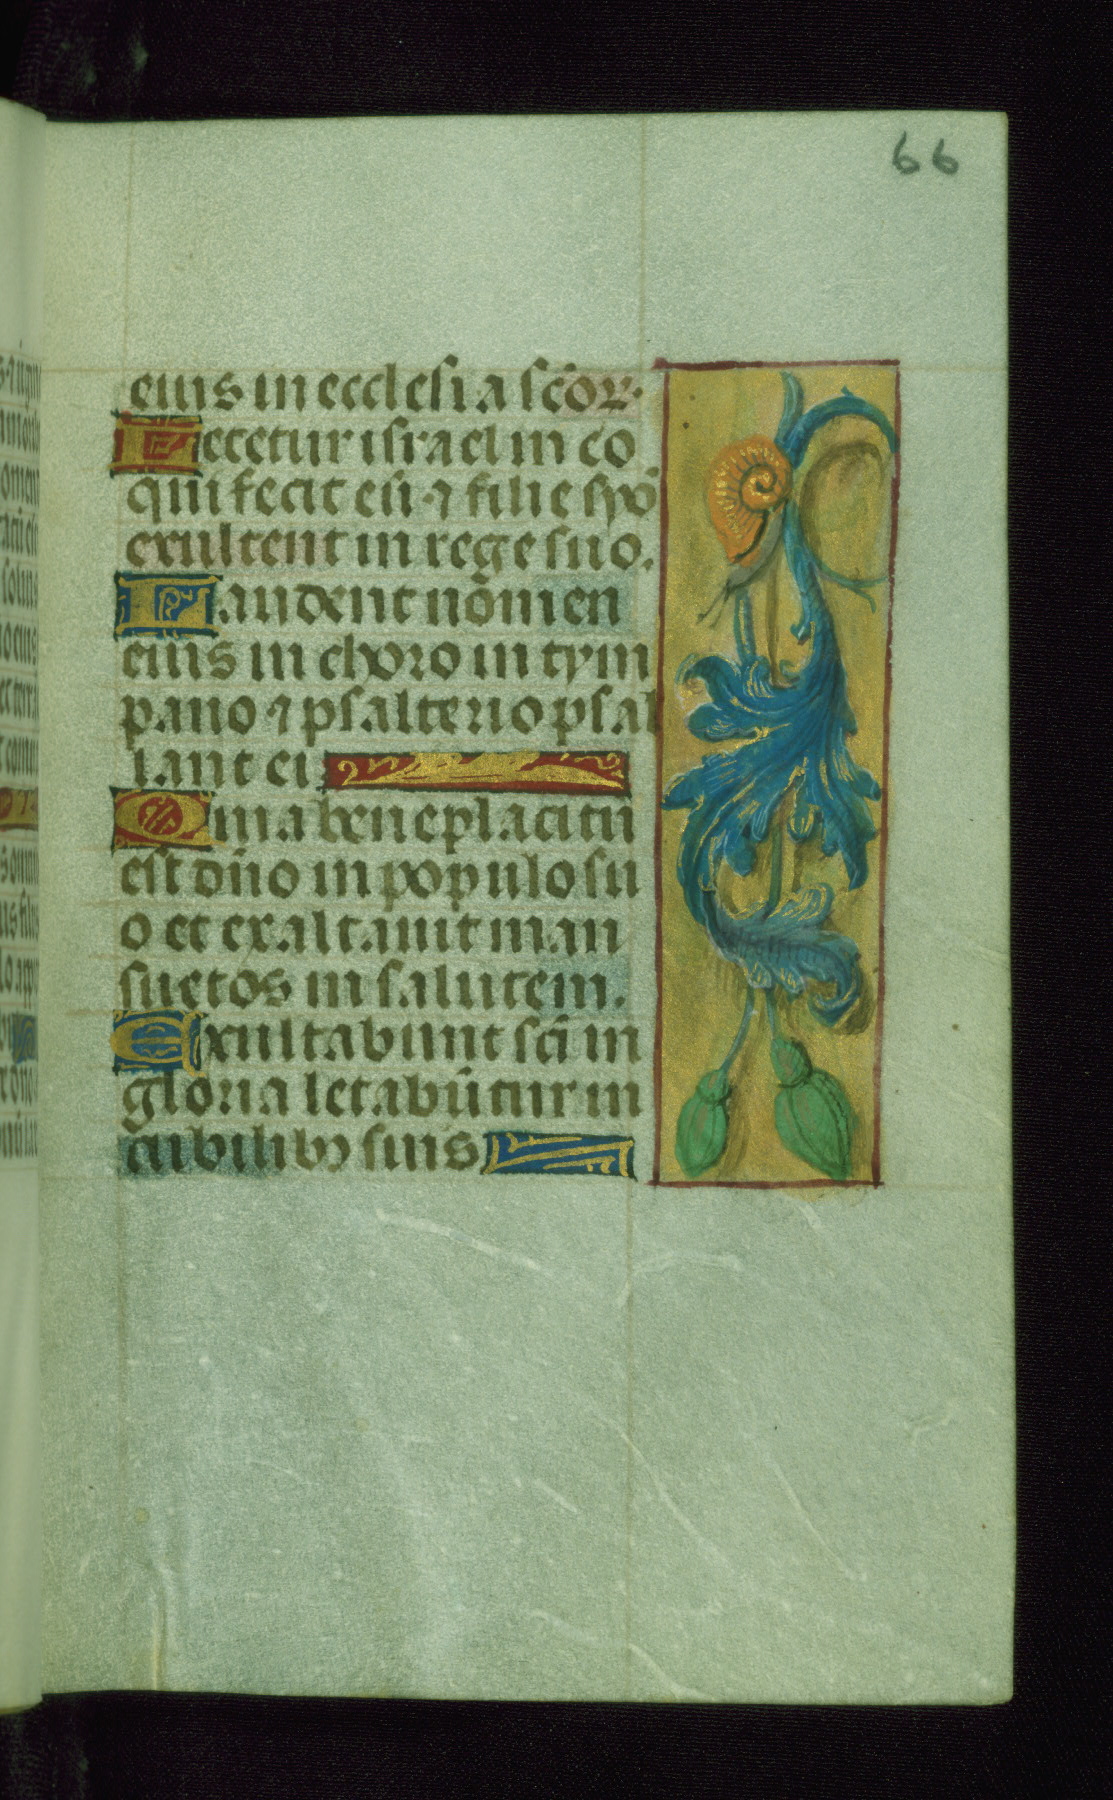 66
eius in ecclesia sc̄oꝝ.
Lecetur israel in eo
qui fecit eū. ⁊ filie syō
exultent in rege suo.
Laudent nōmen
eius in choro in tym
pano ⁊ psalterio psal
lant ei
Quia beneplacitū
est dn̄o in populo su
o et exaltauit man
suetos in salutem.
Exultabunt sc̄i in
gloria letabūtur in
cubilibꝫ suis